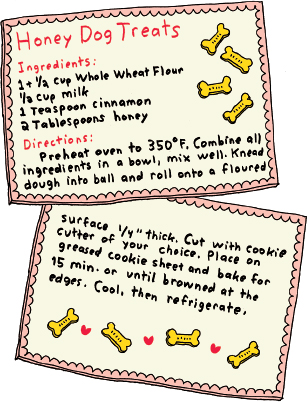 Honey Dog Treats
Ingredients:
1 + 1/2 cup Whole Wheat Flour
1/2 cup milk
1 Teaspoon cinnamon
2 Tablespoons honey
Directions:
Preheat oven to 350°F. Combine all
ingredients in a bowl, mix well. Knead
dough into ball and roll onto a floured
surface 1/4" thick. Cut with cookie
cutter of your choice. Place on
greased cookie sheet and bake for
15 min. or until browned at the
edges. Cool, then refrigerate.